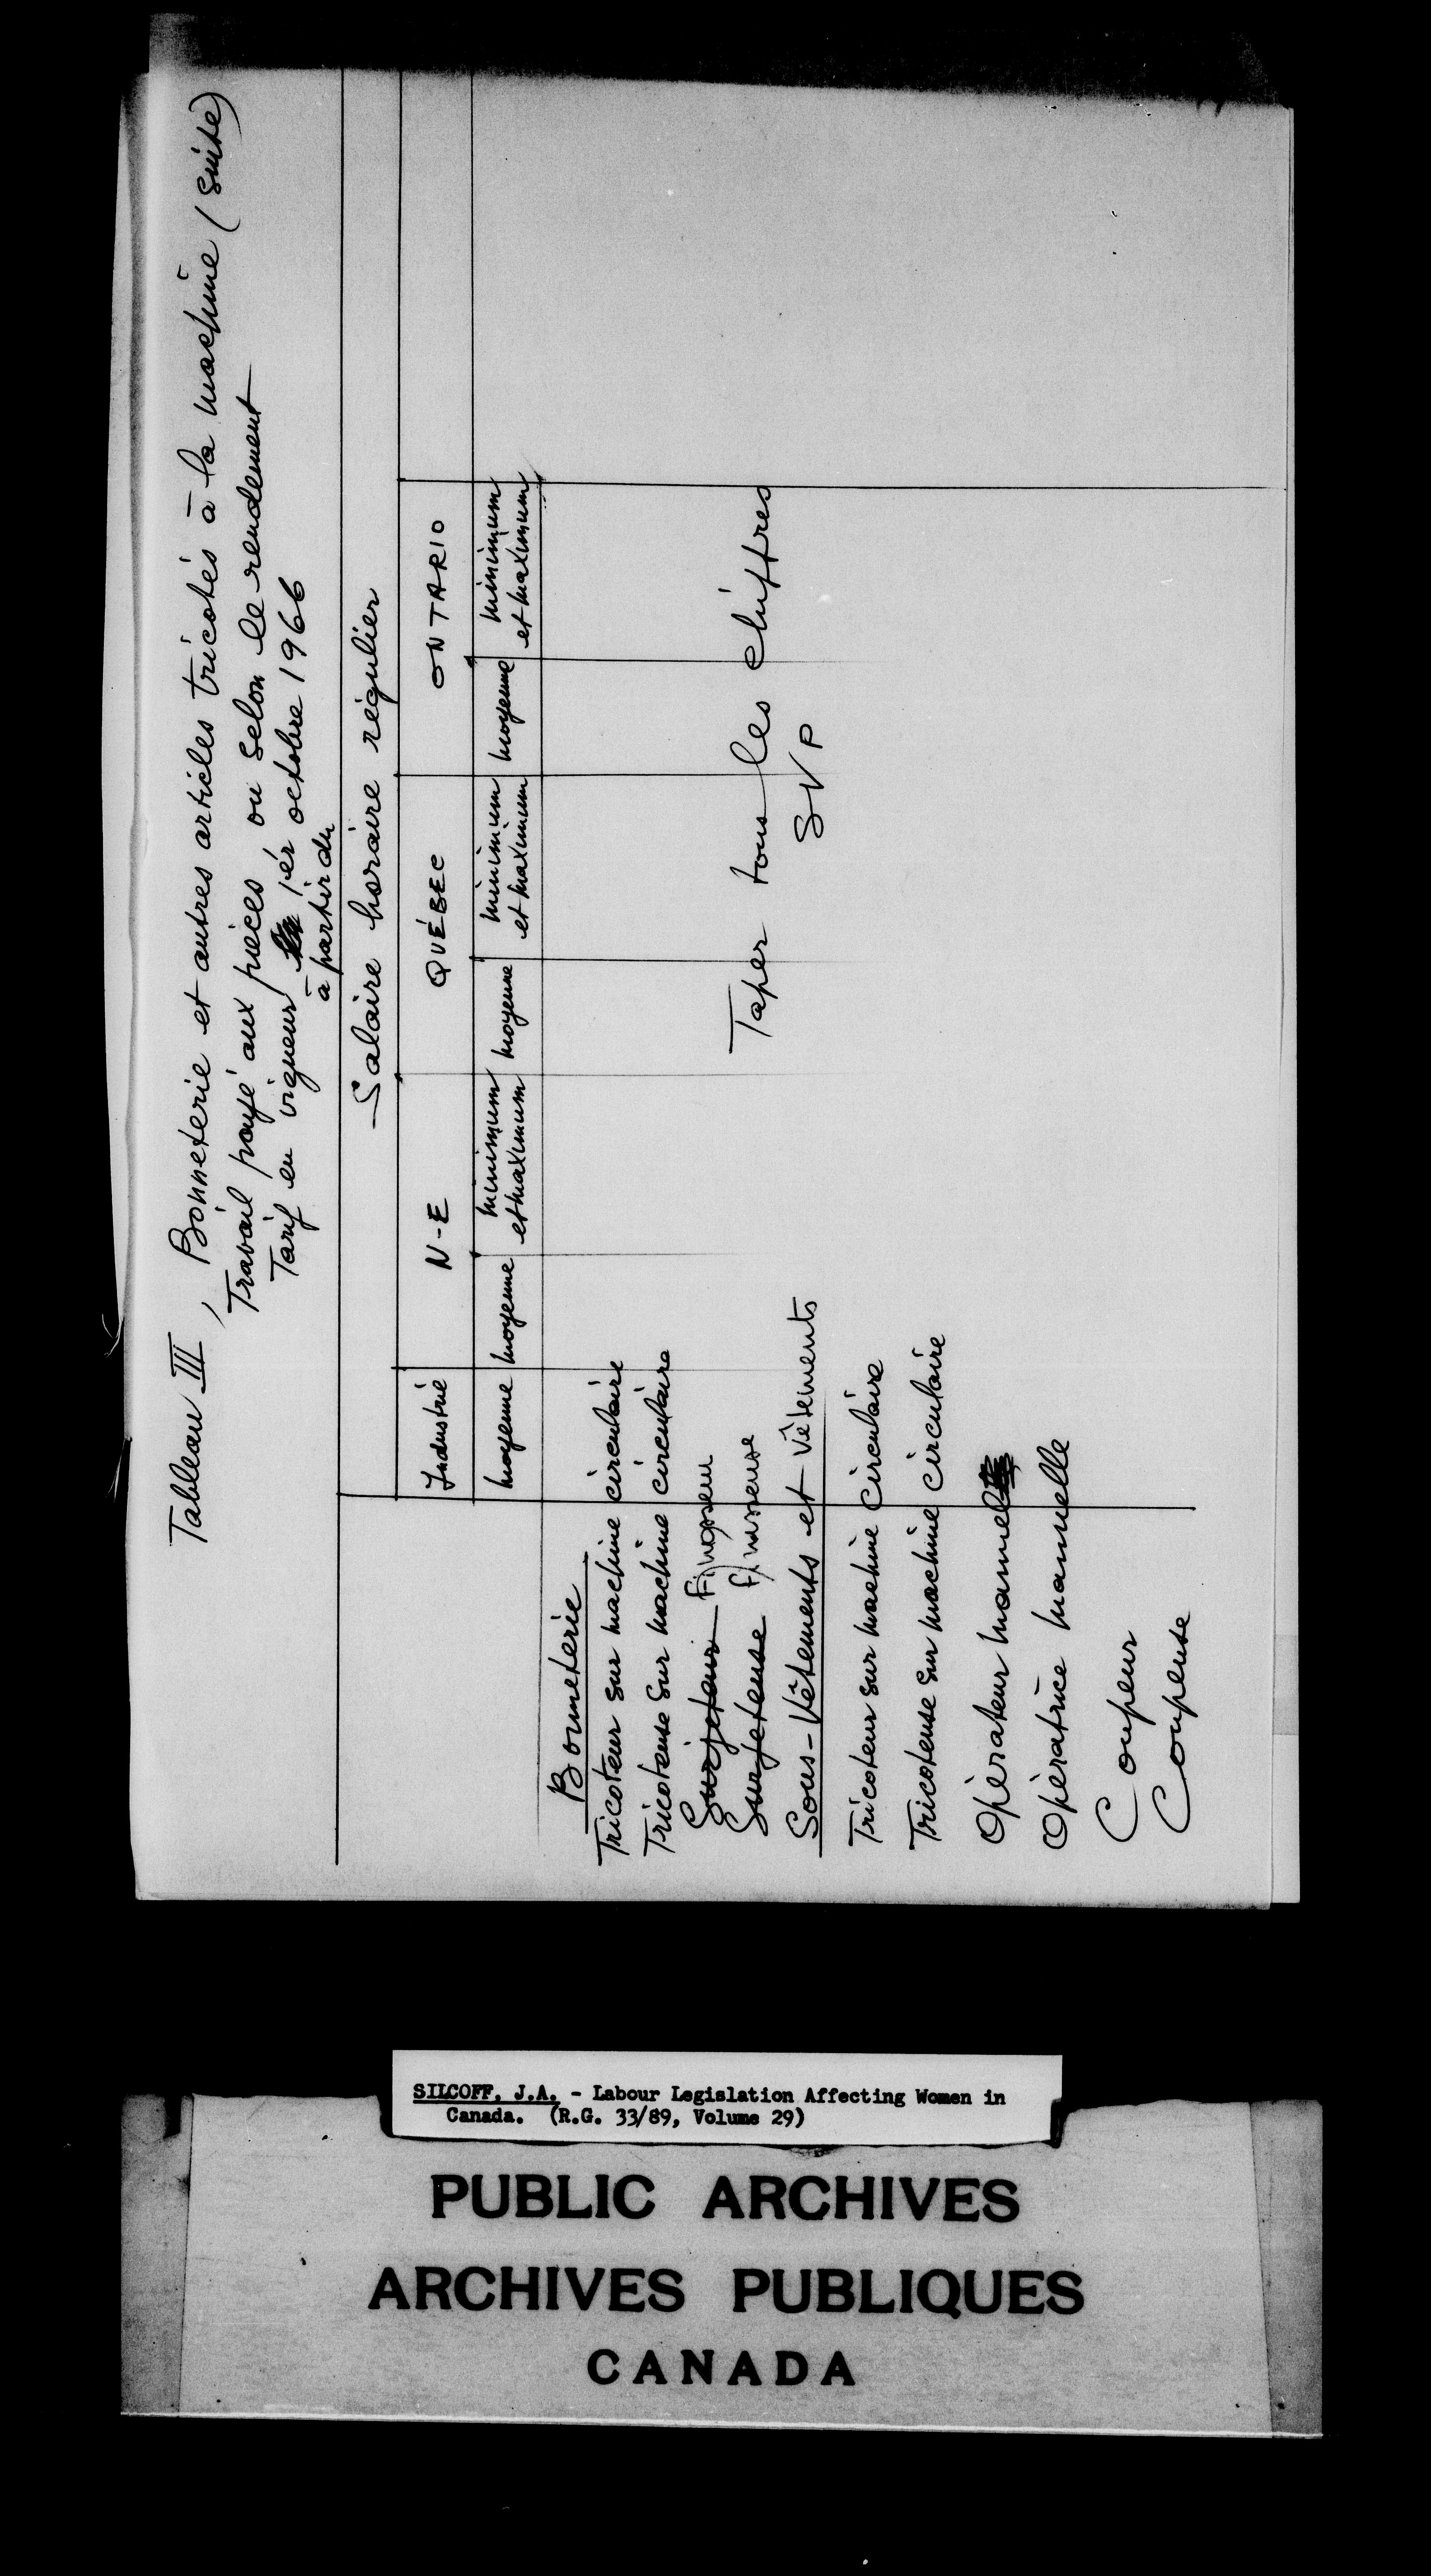 Tableau III, Bonneterie et autres articles tricotés à la machine (suite)
Travail payé aux pièces ou selon le rendement
Tarif en vigueur 1er octobre 1966
à partir du
Salaire horaire régulier
Industrie N-E QUÉBEC ONTARIO
moyenne moyenne minimum et maximum moyenne minimum et maximum moyenne minimum et maximum
Bonneterie
Tricoteur sur machine circulaire
Tricoteuse sur machine circulaire
Surjeteur Finisseur
Surjeteuse Finisseuse
Taper tous les chiffres
SVP
Sous-Vêtements et Vêtements
Tricoteur sur machine circulaire
Tricoteuse sur machine circulaire
Opérateur manuel
Opératrice manuelle
Coupeur
Coupeuse
SILCOFF, J.A. - Labour Legislation Affecting Women in
Canada. (R.G. 33/89, Volume 29)
PUBLIC ARCHIVES
ARCHIVES PUBLIQUES
CANADA